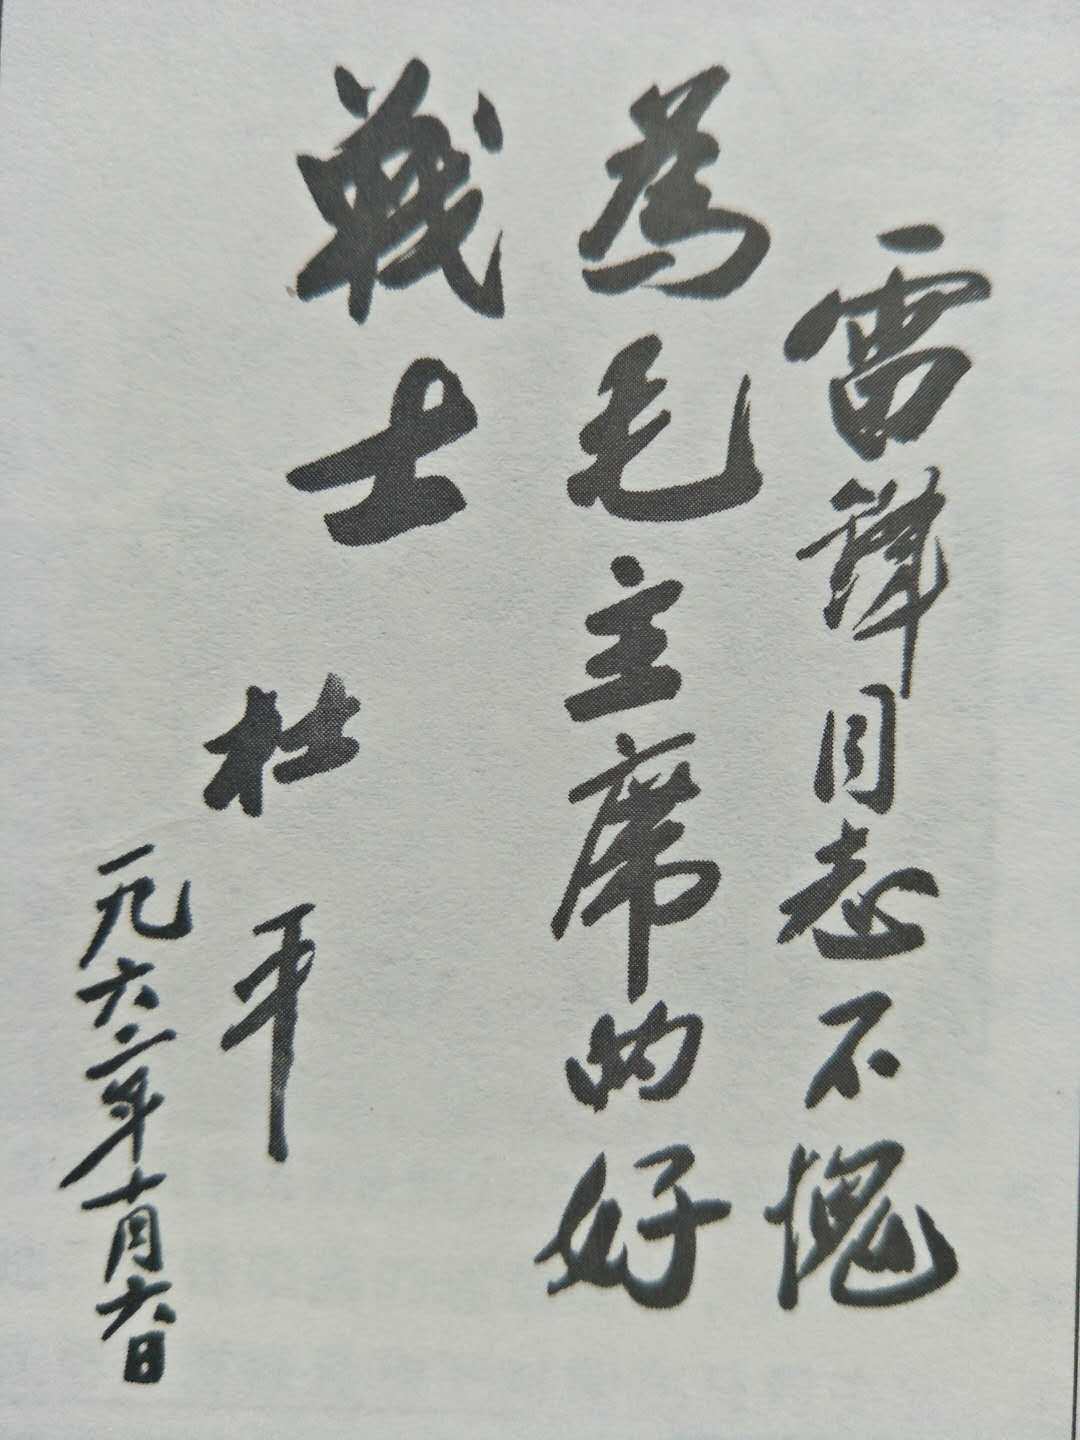 雷锋同志不愧
為毛主席的好
戰士
杜平
一九六二年十月六日